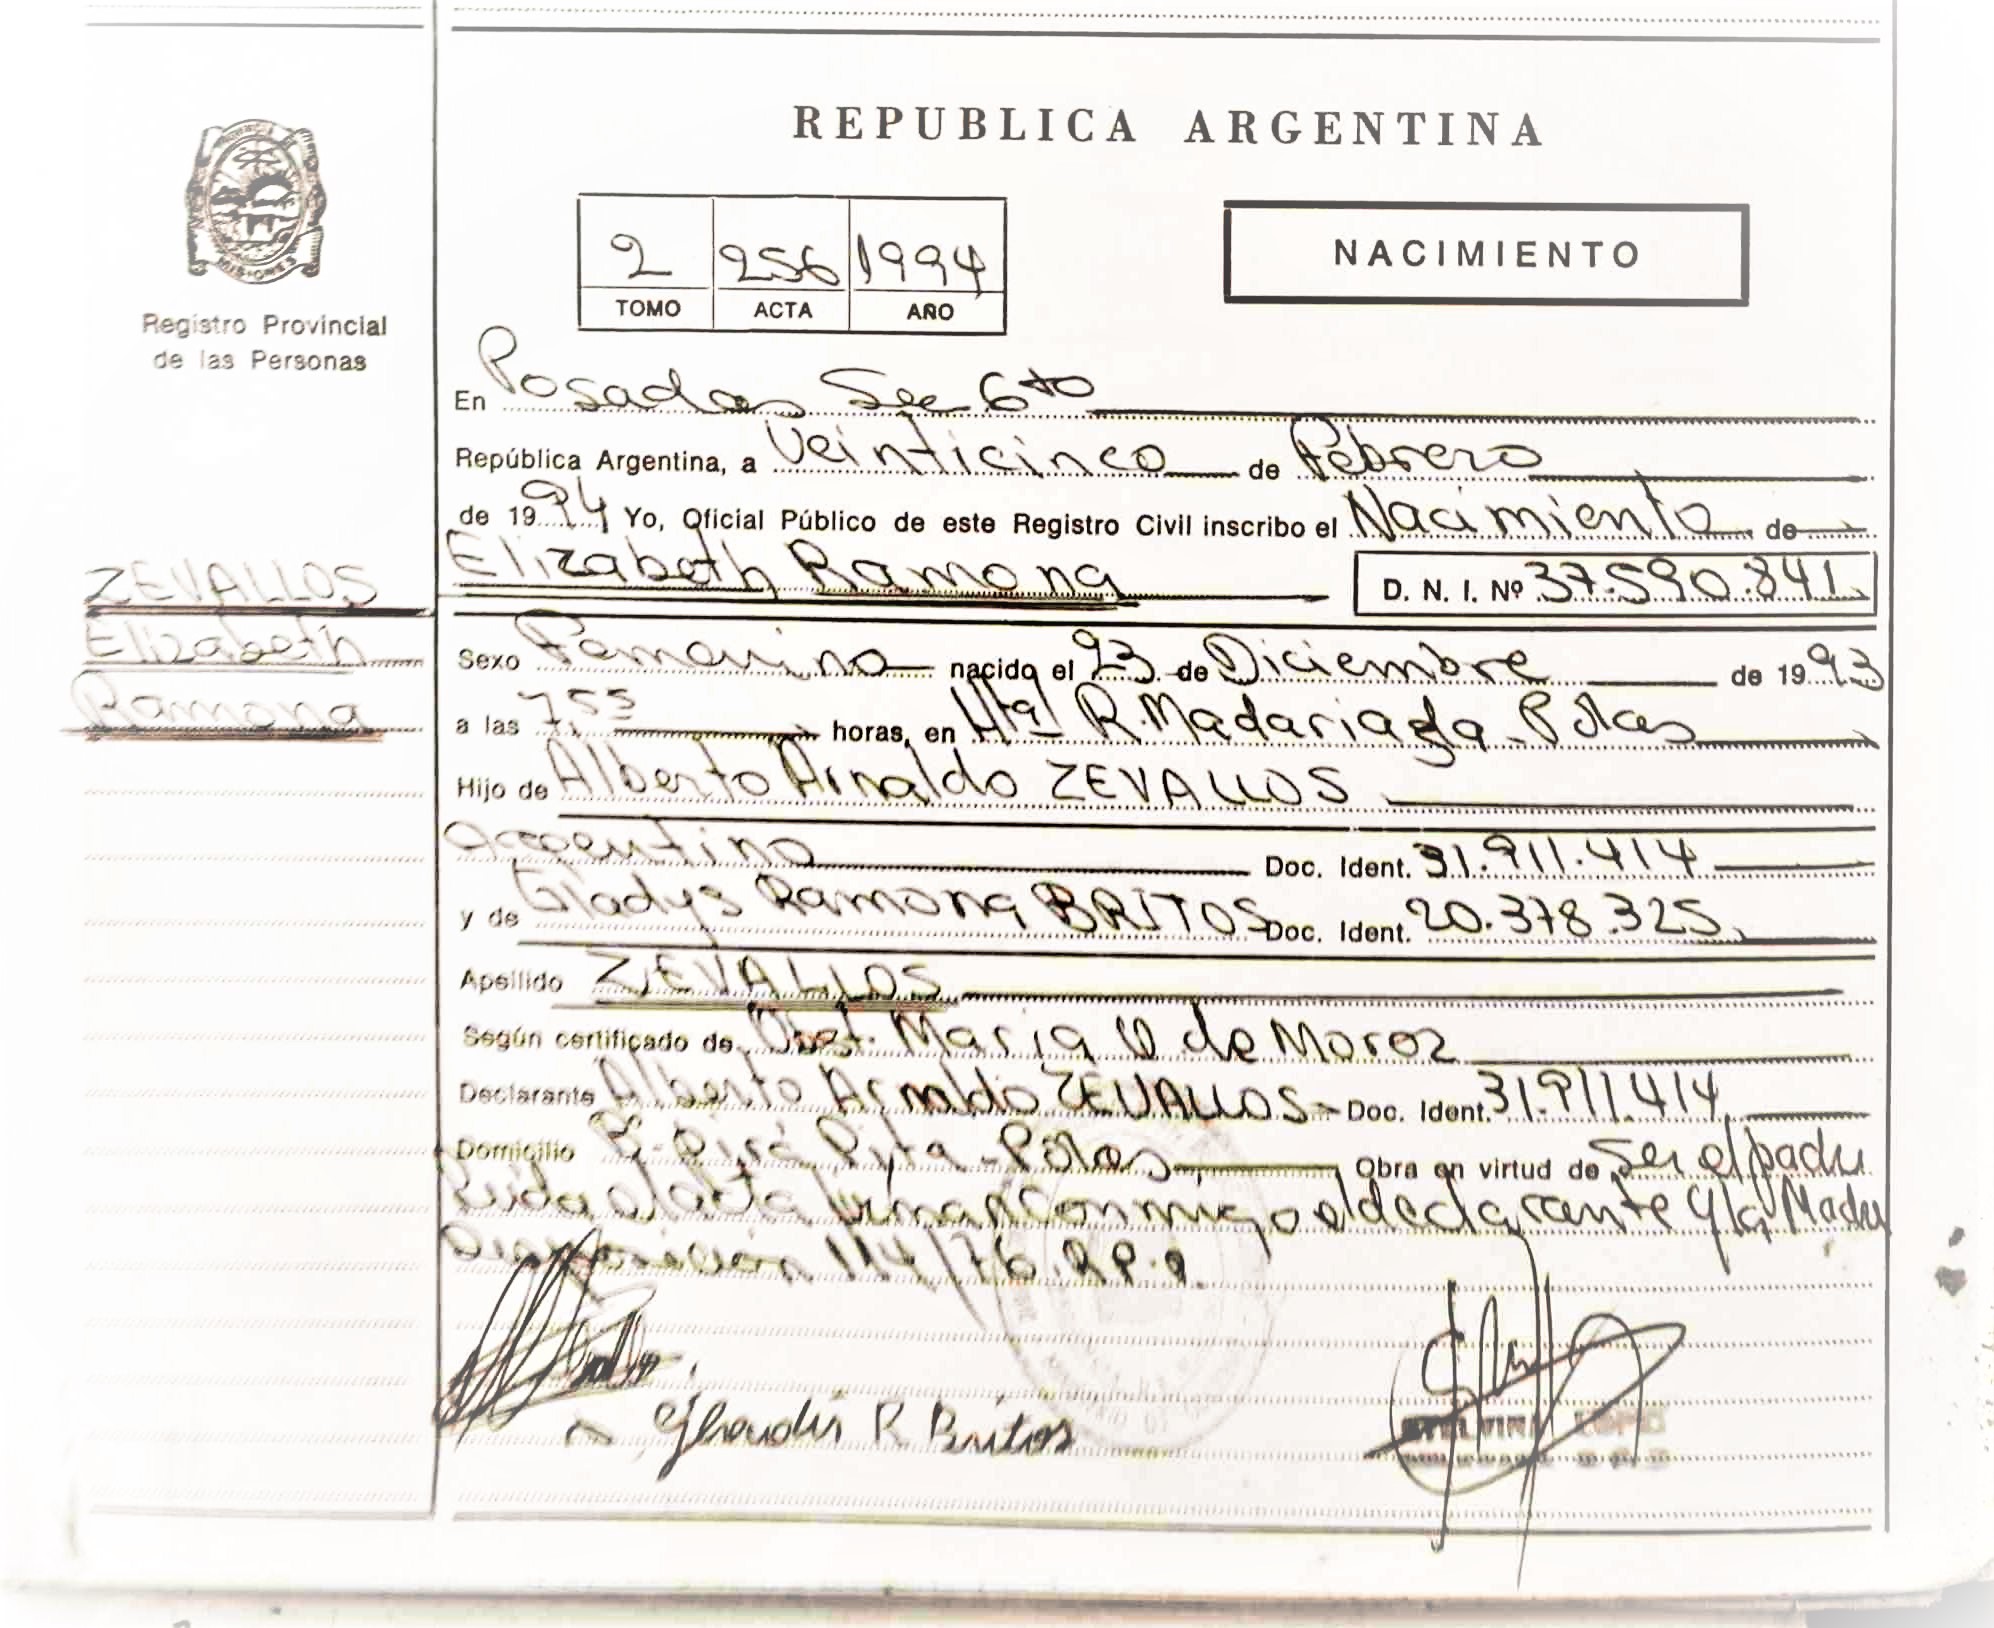 REPUBLICA ARGENTINA
MISIONES
Registro Provincial
de las Personas
2 256 1994
TOMO ACTA AÑO
NACIMIENTO
En Posadas Sec 6to
República Argentina, a Veinticinco de Febrero
de 1994 Yo, Oficial Público de este Registro Civil inscribo el Nacimiento de
Elizabeth Ramona D. N. I. Nº 37.590.841
ZEVALLOS
Elizabeth
Ramona
Sexo Femenino nacido el 23 de Diciembre de 1993
a las 7,55 horas, en Htal R. Madariaga - Pdas
Hijo de Alberto Arnaldo ZEVALLOS
Argentino Doc. Ident. 31.911.414
y de Gladys Ramona BRITOS Doc. Ident. 20.378.325
Apellido ZEVALLOS
Según certificado de Obst. Maria V de Moroz
Declarante Alberto Arnaldo ZEVALLOS - Doc. Ident. 31.911.414
Domicilio - Pdas Obra en virtud de Ser el padre
Leida el acta firman conmigo el declarante y la Madre
Disposición 114/76.R.P.
R Britos